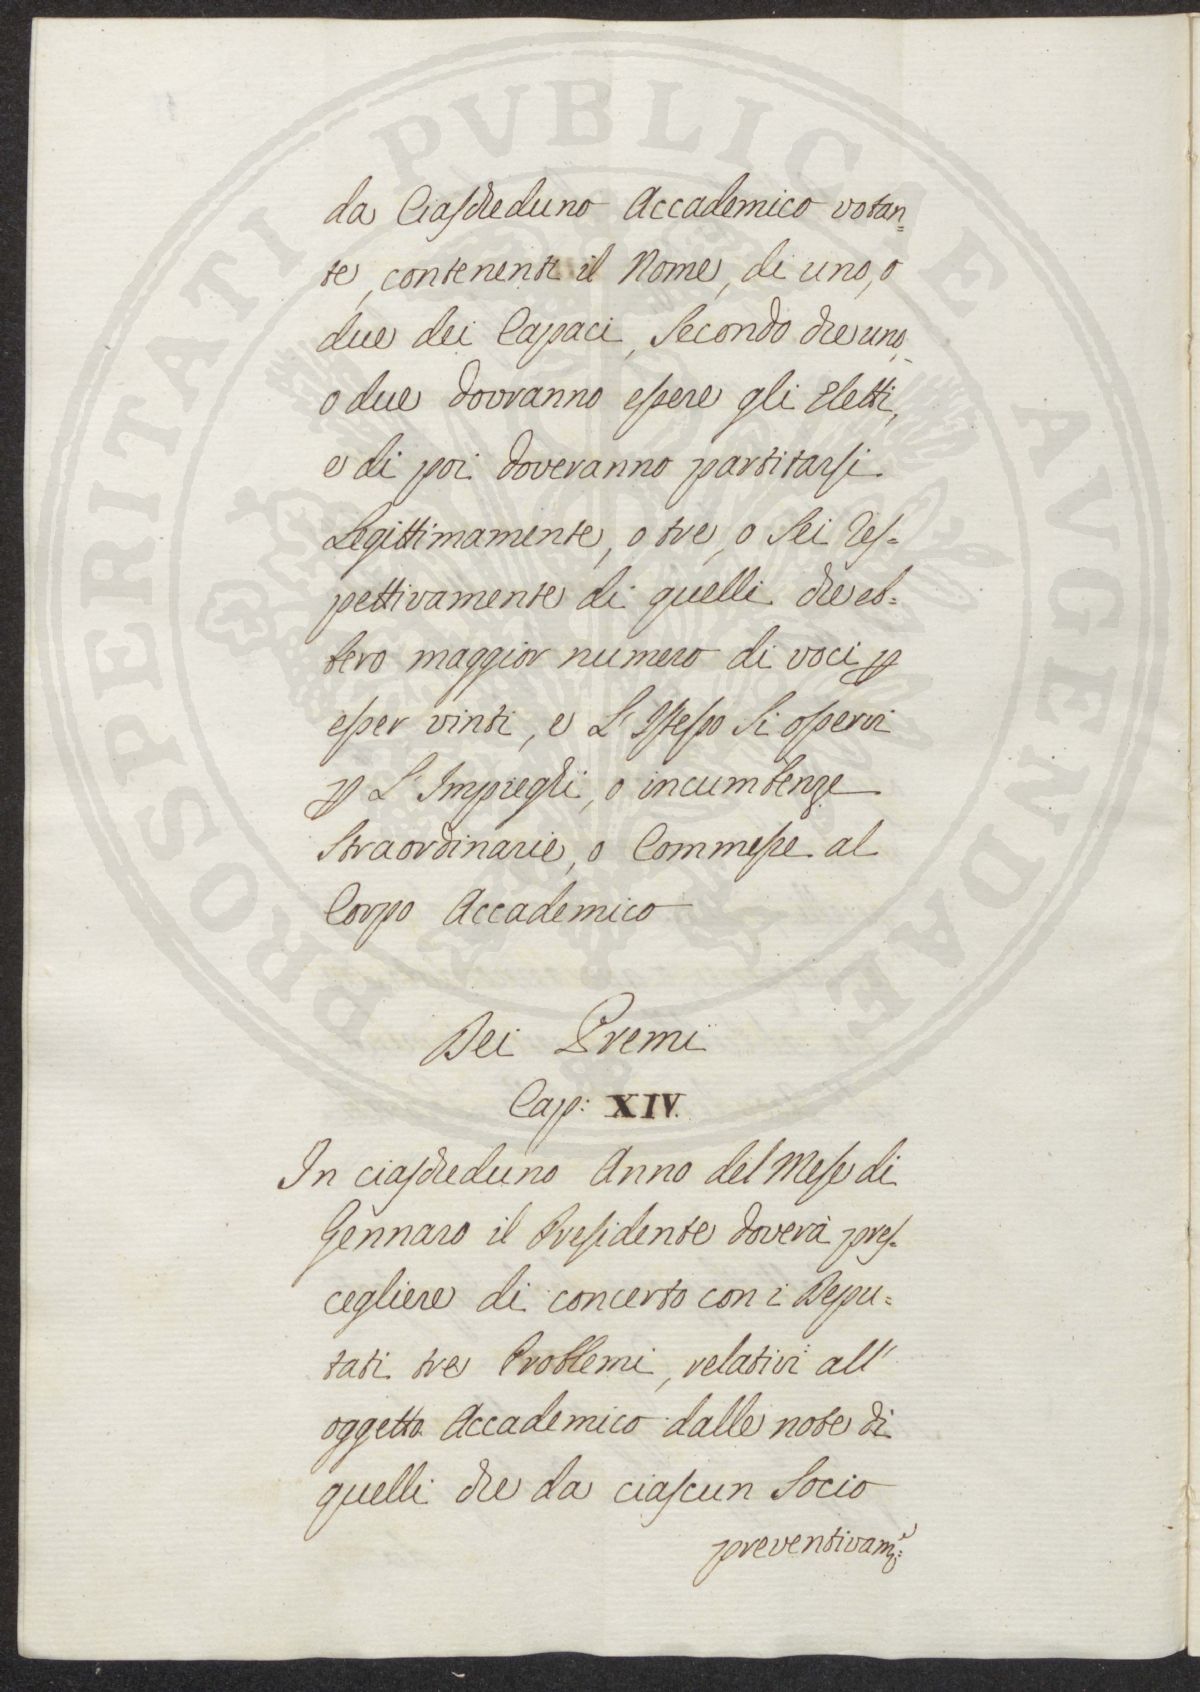 PROSPERITATI PVBLICAE AVGENDAE
da Ciascheduno Accademico votan=
te, contenenti il Nome, di uno, o
due dei Capaci, Secondo che uno,
o due dovranno essere gli Eletti,
e di poi doveranno partitarsi
Legittimamente, o tre, o Sei res=
pettivamente di quelli che eb=
bero maggior numero di voci p
esser vinti, e L'Istesso Si osservi
p L'Impieghi, o incumbenze
Straordinarie, o Commesse al
Corpo Accademico
Dei Premi
Cap: XIV.
In ciascheduno Anno del Mese di
Gennaro il Presidente doverà pres=
cegliere di concerto con i Depu=
tati tre Problemi, relativi all'
oggetto Accademico dalle note di
quelli che da ciascun Socio
preventivam:e